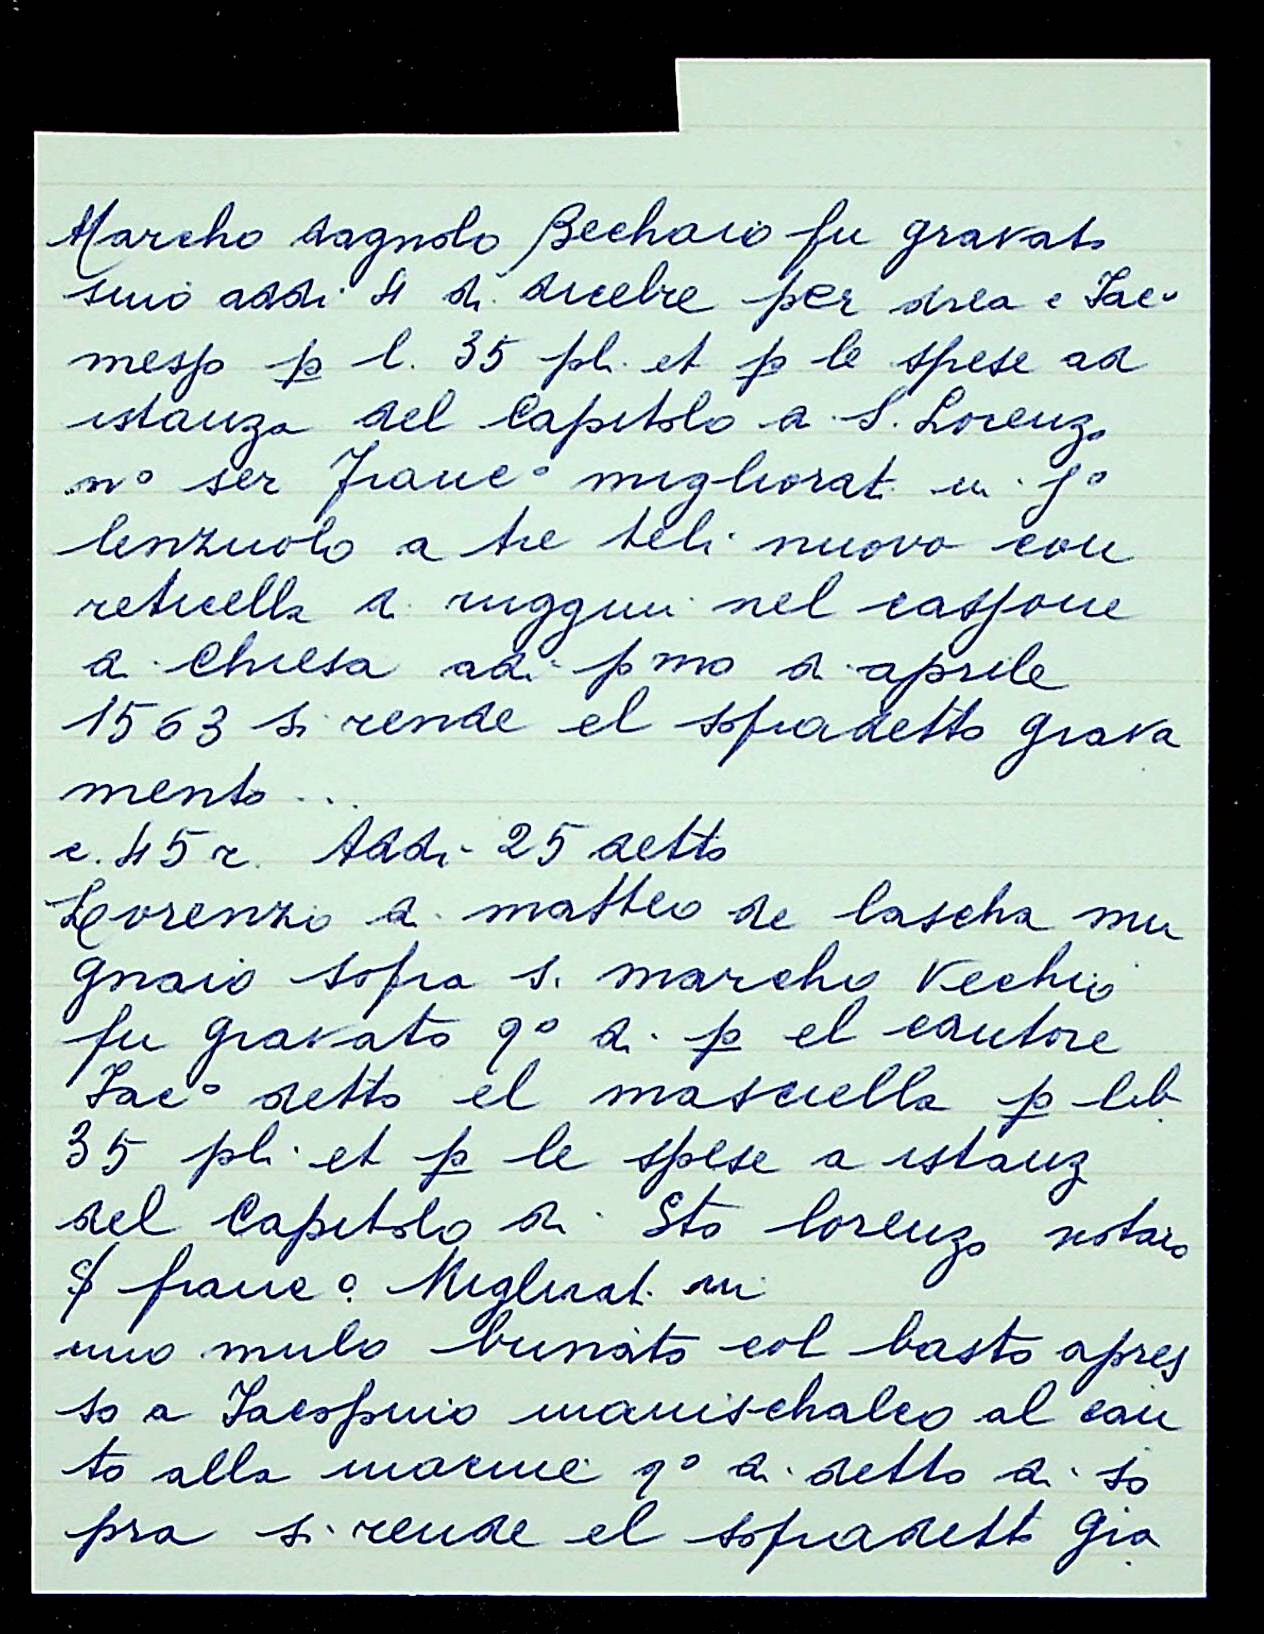 Marcho dagnolo Bechaio fu gravato
sino addi 4 di dicebre per drea e Iac°
messo p l. 35 pli et p le spese ad
istanza del Capitolo di S. Lorenzo
n° ser Franc° migliorati in j°
lenzuolo a tre teli nuovo con
reticella di ruggini nel cassone
di Chiesa adi pmo di aprile
1563 si rende el sopradetto grava
mento ...
c. 45 r. Addi 25 detto
Lorenzo di matteo de lascha mu
gnaio sopra s. marcho Vechio
fu gravato q° di p el cautore
Iac° detto el masciella p lib
35 pli et p le spese a istanz
del Capitolo di Sto lorenzo notaro
S/ franc°. Migliorat. in
uno mulo bunato col basto apres
so a Iacopinio manischalco al can
to alla macine q° di detto di so
pra si rende el sopradetto gra